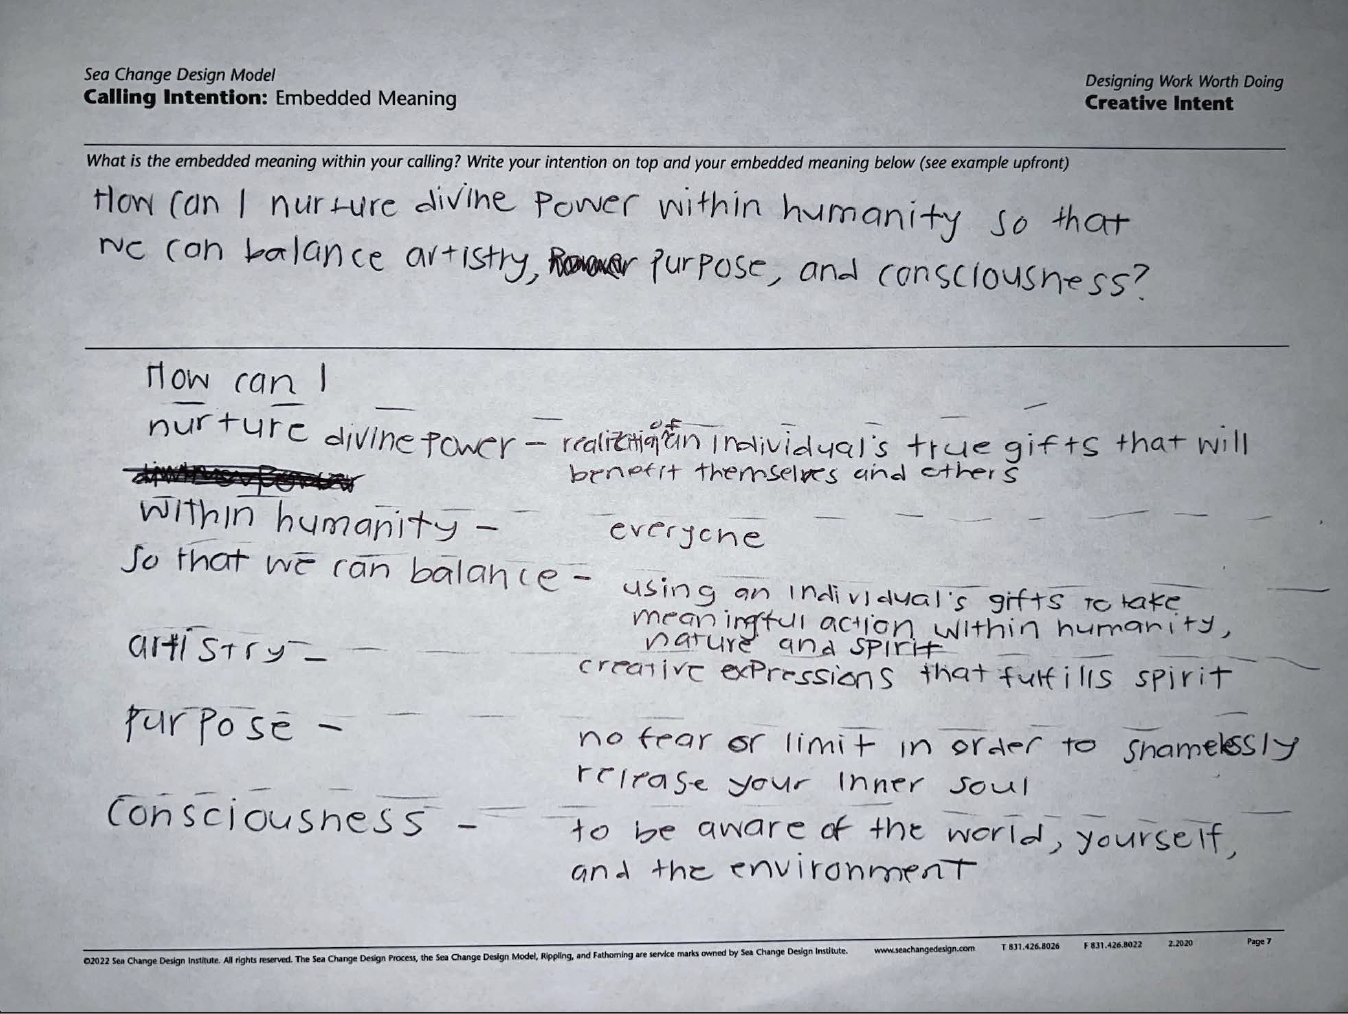 Sea Change Design Model
Calling Intention: Embedded Meaning
Designing Work Worth Doing
Creative Intent
What is the embedded meaning within your calling? Write your intention on top and your embedded meaning below (see example upfront)
How can I nurture divine power within humanity so that
we can balance artistry, purpose, and consciousness?
How can I
nurture divine power - of an individual's true gifts that will
benefit themselves and others
within humanity - everyone
so that we can balance - using an individual's gifts to take
meaningful action within humanity,
nature and spirit
artistry - creative expressions that fulfills spirit
purpose - no fear or limit in order to shamelessly
release your inner soul
consciousness - to be aware of the world, yourself,
and the environment
©2022 Sea Change Design Institute. All rights reserved. The Sea Change Design Process, the Sea Change Design Model, Rippling, and Fathoming are service marks owned by Sea Change Design Institute. www.seachangedesign.com T 831.426.8026 F 831.426.8022 2.2020 Page 7